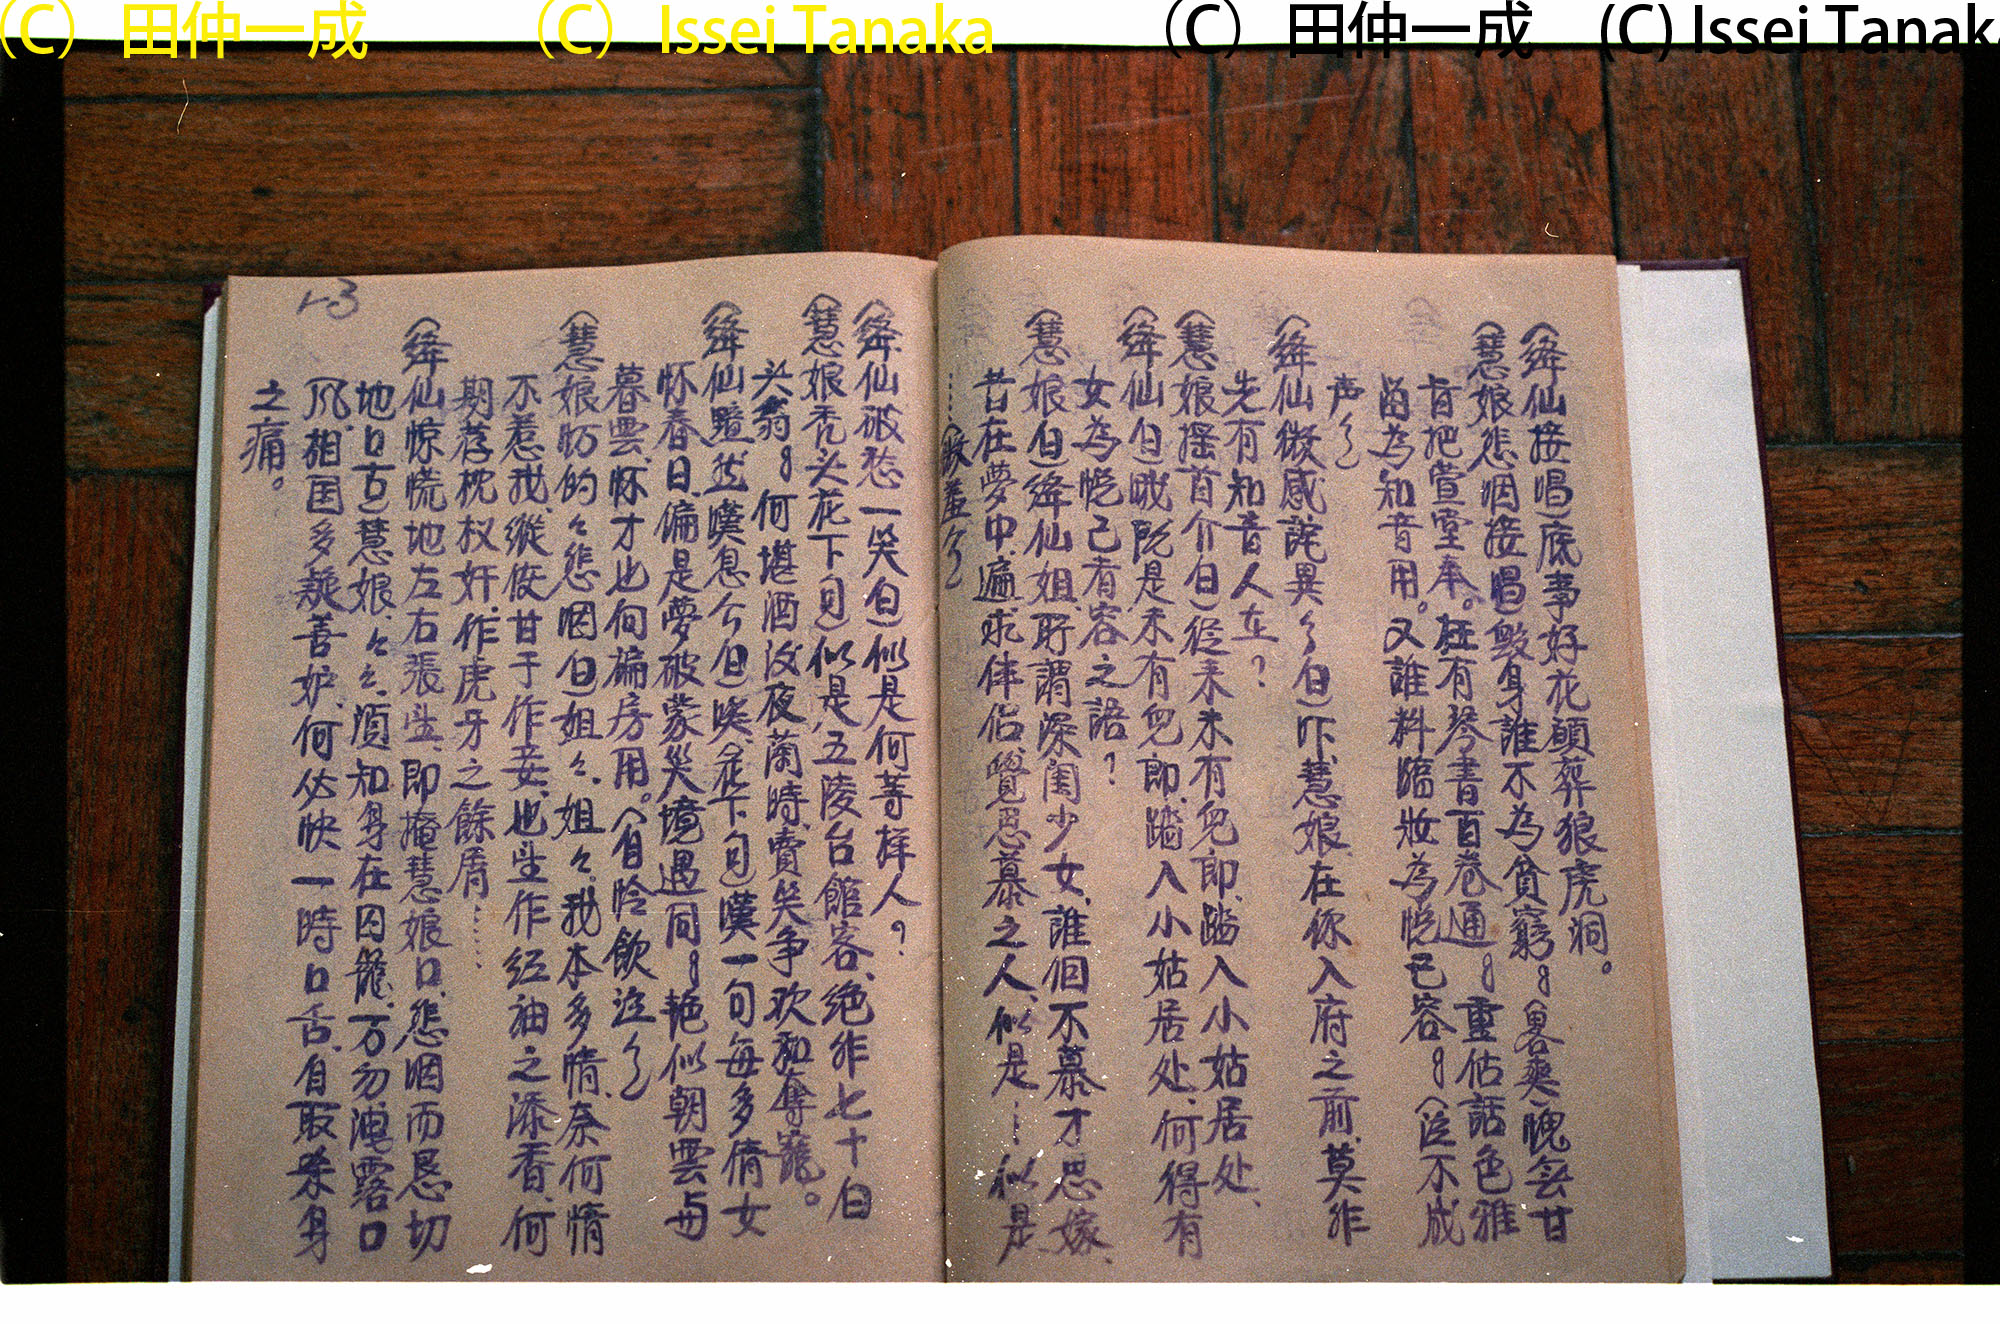 (C) 田仲一成 (C) Issei Tanaka (C) 田仲一成 (C) Issei Tanaka
(絳仙接唱)底事好花頭葬狼虎洞。
(慧娘悲咽接唱)毀身誰不為貧窮。(畧爽)愧無甘
旨把萱堂奉。枉有琴書百卷通。重估話色雅
當為知音用。又誰料臨妝為悅己容。(泣不成
声介)
(絳仙微感詫異介白)吓、慧娘、在你入府之前、莫非
先有知音人在?
(慧娘搖首介白)從来未有兒郎、踏入小姑居处、
(絳仙白)哦、既是未有兒郎、踏入小姑居处、何得有
女為悅己者容之語?
(慧娘白)絳仙姐、所謂深闺少女、誰個不慕才思嫁、
昔在夢中、遍求伴侣、覺思慕之人、似是…似是
……(嬌羞介)
(絳仙破愁一笑白)似是何等樣人?
(慧娘秃头花下句)似是五陵台館客、绝非七十白
头翁。何堪酒後夜蘭時、賣笑争欢和奪寵。
(絳仙黯然嘆息介白)唉、(花下句)嘆一句每多倩女
怀春日、偏是夢破蒙災境遇同。艳似朝雲与
暮雲、怀才也向褊房用。(自怜飲泣介)
(慧娘切的々悲咽白)姐々、姐々、我本多情、奈何情
不惹我、縱使甘于作妾、也坐作红袖之添香、何
期荐枕权奸、作虎牙之餘屑……
(絳仙惊慌地左右張望、即掩慧娘口、悲咽而恳切
地口古)慧娘、々々、須知身在囚籠、万勿洩露口
风、相国多疑善妒、何必快一時口舌、自取杀身
之痛。